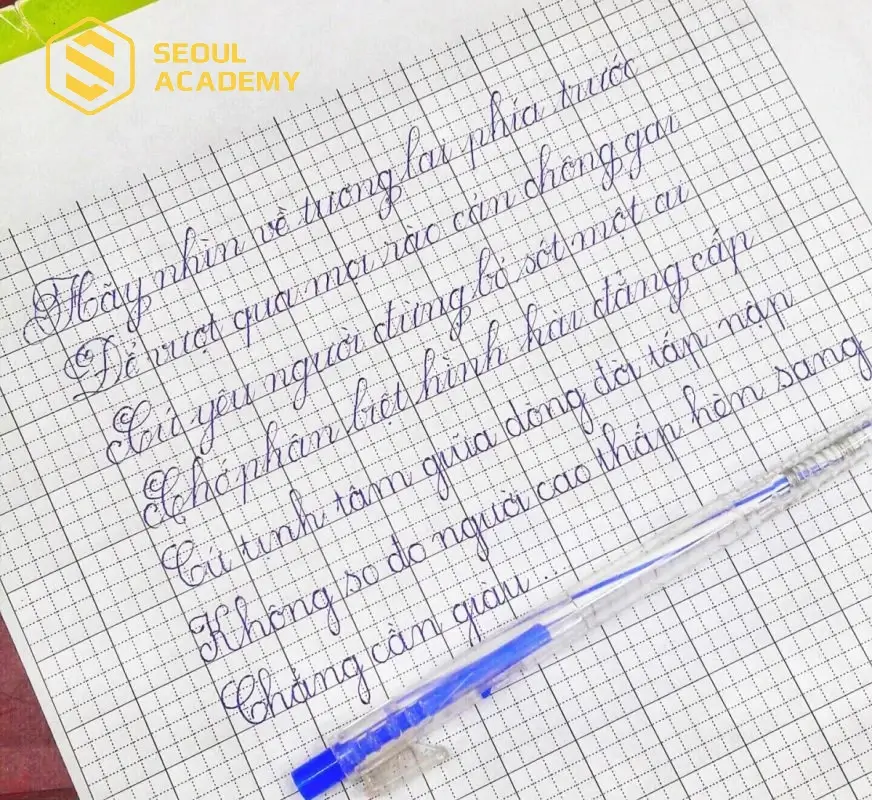 SEOUL
ACADEMY
Hãy nhìn về tương lai phía trước
Để vượt qua mọi rào cản chông gai
Cứ yêu người đừng bỏ sót một ai
Chớ phân biệt hình hài đẳng cấp
Cứ tịnh tâm giữa dòng đời tấp nập
Không so đo người cao thấp hèn sang
Chẳng cần giàu...